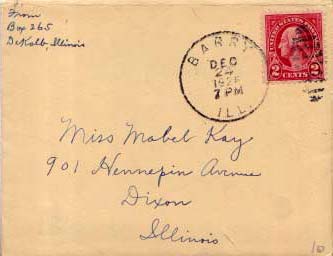 From
Box 265
DeKalb, Illinois
BARRY
DEC
24
7 PM
ILL.
UNITED STATES POSTAGE
2 CENTS 2
Miss Mabel Kay
901 Hennepin Avenue
Dixon
Illinois
10